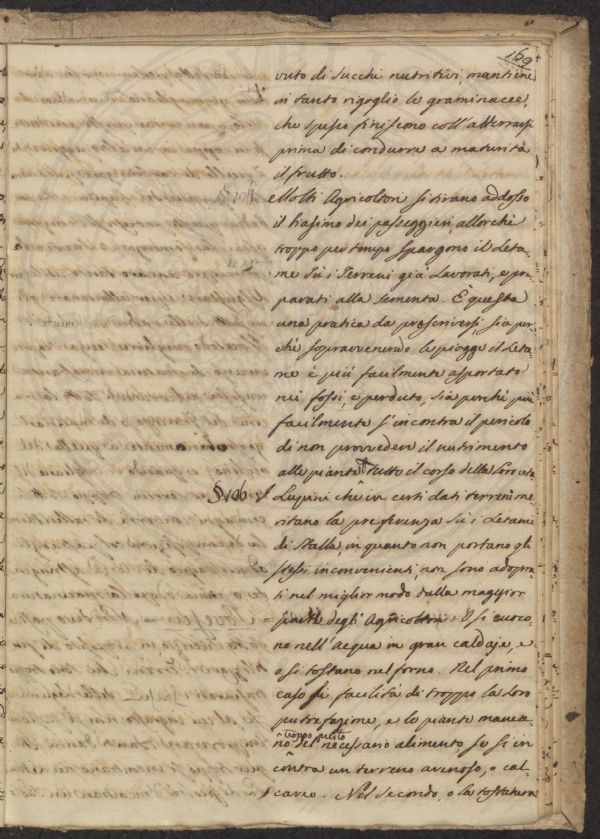 169
vuto di succhi nutritivi, mantiene
in tanto rigoglio le graminacee,
che spesso finiscono coll'atterrarsi
prima di condurre a maturità
il frutto.
Molti Agricoltori si tirano addosso
il biasimo dei passeggieri, allorchè
troppo per tempo spargono il Leta-
me sù i Terreni già Lavorati, e pre-
parati alla sementa. È questa
una pratica da proscriversi, sia per-
chè sopravvenendo le piogge il Leta-
me è più facilmente asportato
nei fossi, e perduto, sia perchè più
facilmente s'incontra il pericolo
di non provvedere il nutrimento
alle piante tutto il corso della Loro vita
§106. I Lupini che in certi dati terreni me-
ritano la preferenza sù i Letami
di Stalla in quanto non portano gli
stessi inconvenienti, non sono adopra-
ti nel miglior modo dalla maggior
parte degli Agricoltori. O si cuoco-
no nell'Acqua in gran caldaje, e
o si tostano nel forno. Nel primo
caso si facilita di troppo la Loro
putrefazione, e le piante manca-
no troppo presto del necessario alimento se si in-
contra un terreno arenoso, o cal-
careo. Nel secondo, o la tostatura